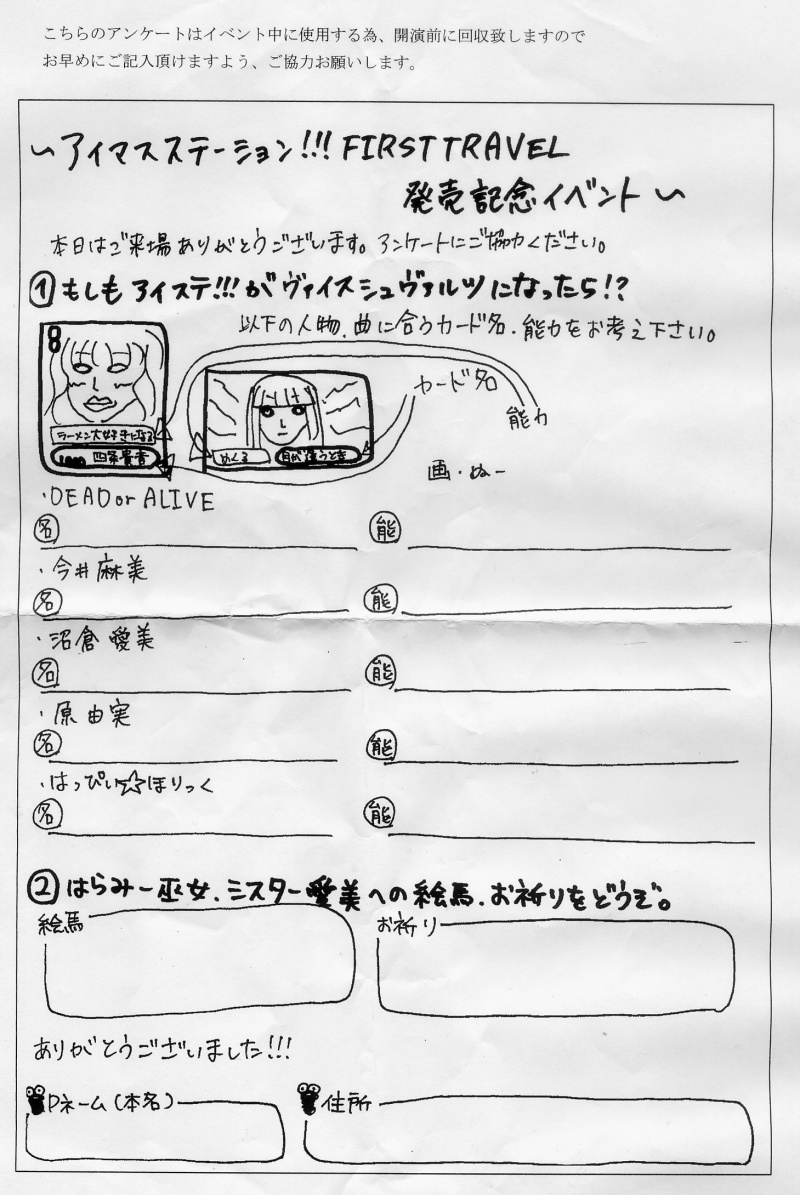 こちらのアンケートはイベント中に使用する為、開演前に回収致しますので
お早めにご記入頂けますよう、ご協力お願いします。
～アイマスステーション!!! FIRST TRAVEL
発売記念イベント～
本日はご来場ありがとうございます。アンケートにご協力ください。
①もしもアイステ!!!がヴァイスシュヴァルツになったら!?
以下の人物、曲に合うカード名・能力をお考え下さい。
8
カード名
能力
ラーメン大好きになる
四条貴音
めくる
月が違うとき
画・ぬー
・DEAD or ALIVE
名 能
・今井麻美
名 能
・沼倉愛美
名 能
・原由実
名 能
・はっぴぃ☆ほりっく
名 能
②はらみー巫女、ミスター愛美への絵馬、お祈りをどうぞ。
絵馬 お祈り
ありがとうございました!!!
Pネーム(本名) 住所